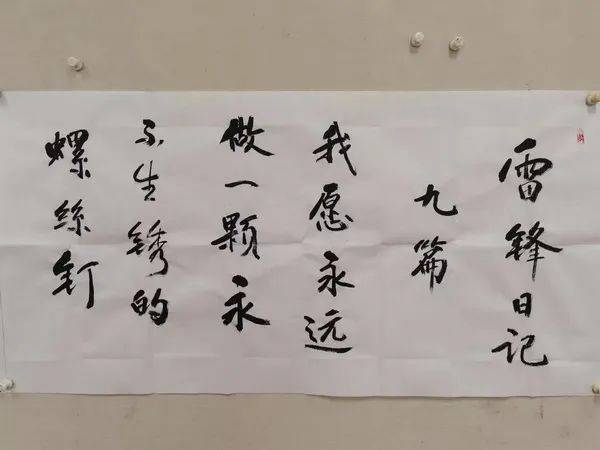 雷锋日记
九篇
我愿永远
做一颗永
不生锈的
螺丝钉